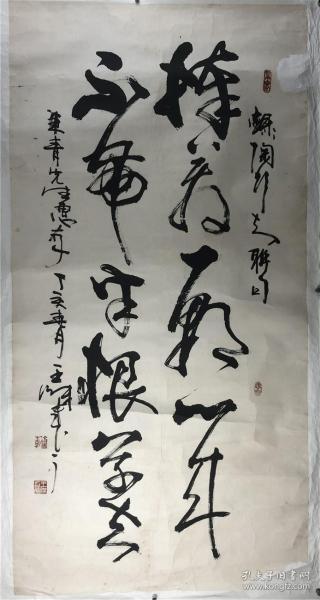 录陶行知联句
捧着一颗心来
不带半根草去
业青先生惠存 丁亥春月
孔夫子旧书网